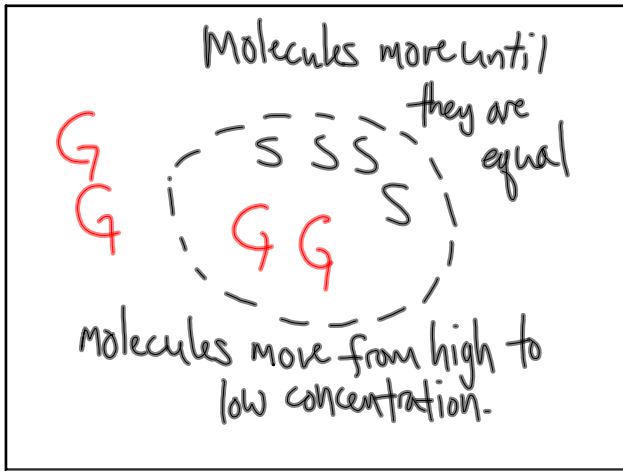 Molecules more until
they are
equal
G
S S S
G
S
G G
molecules move from high to
low concentration.